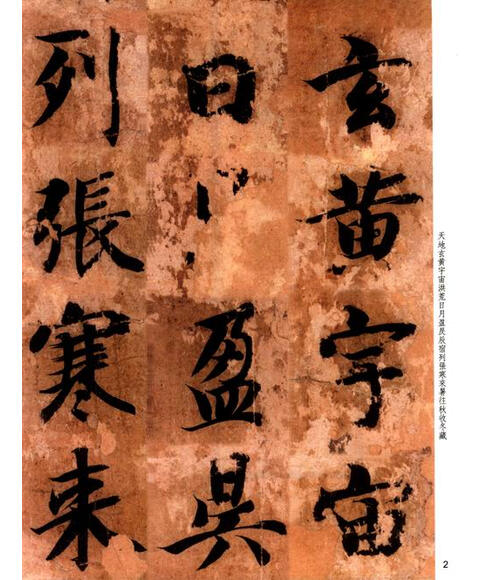 玄黄宇宙
日盈昃
列張寒来
天地玄黄宇宙洪荒日月盈昃辰宿列張寒來暑往秋收冬藏
2